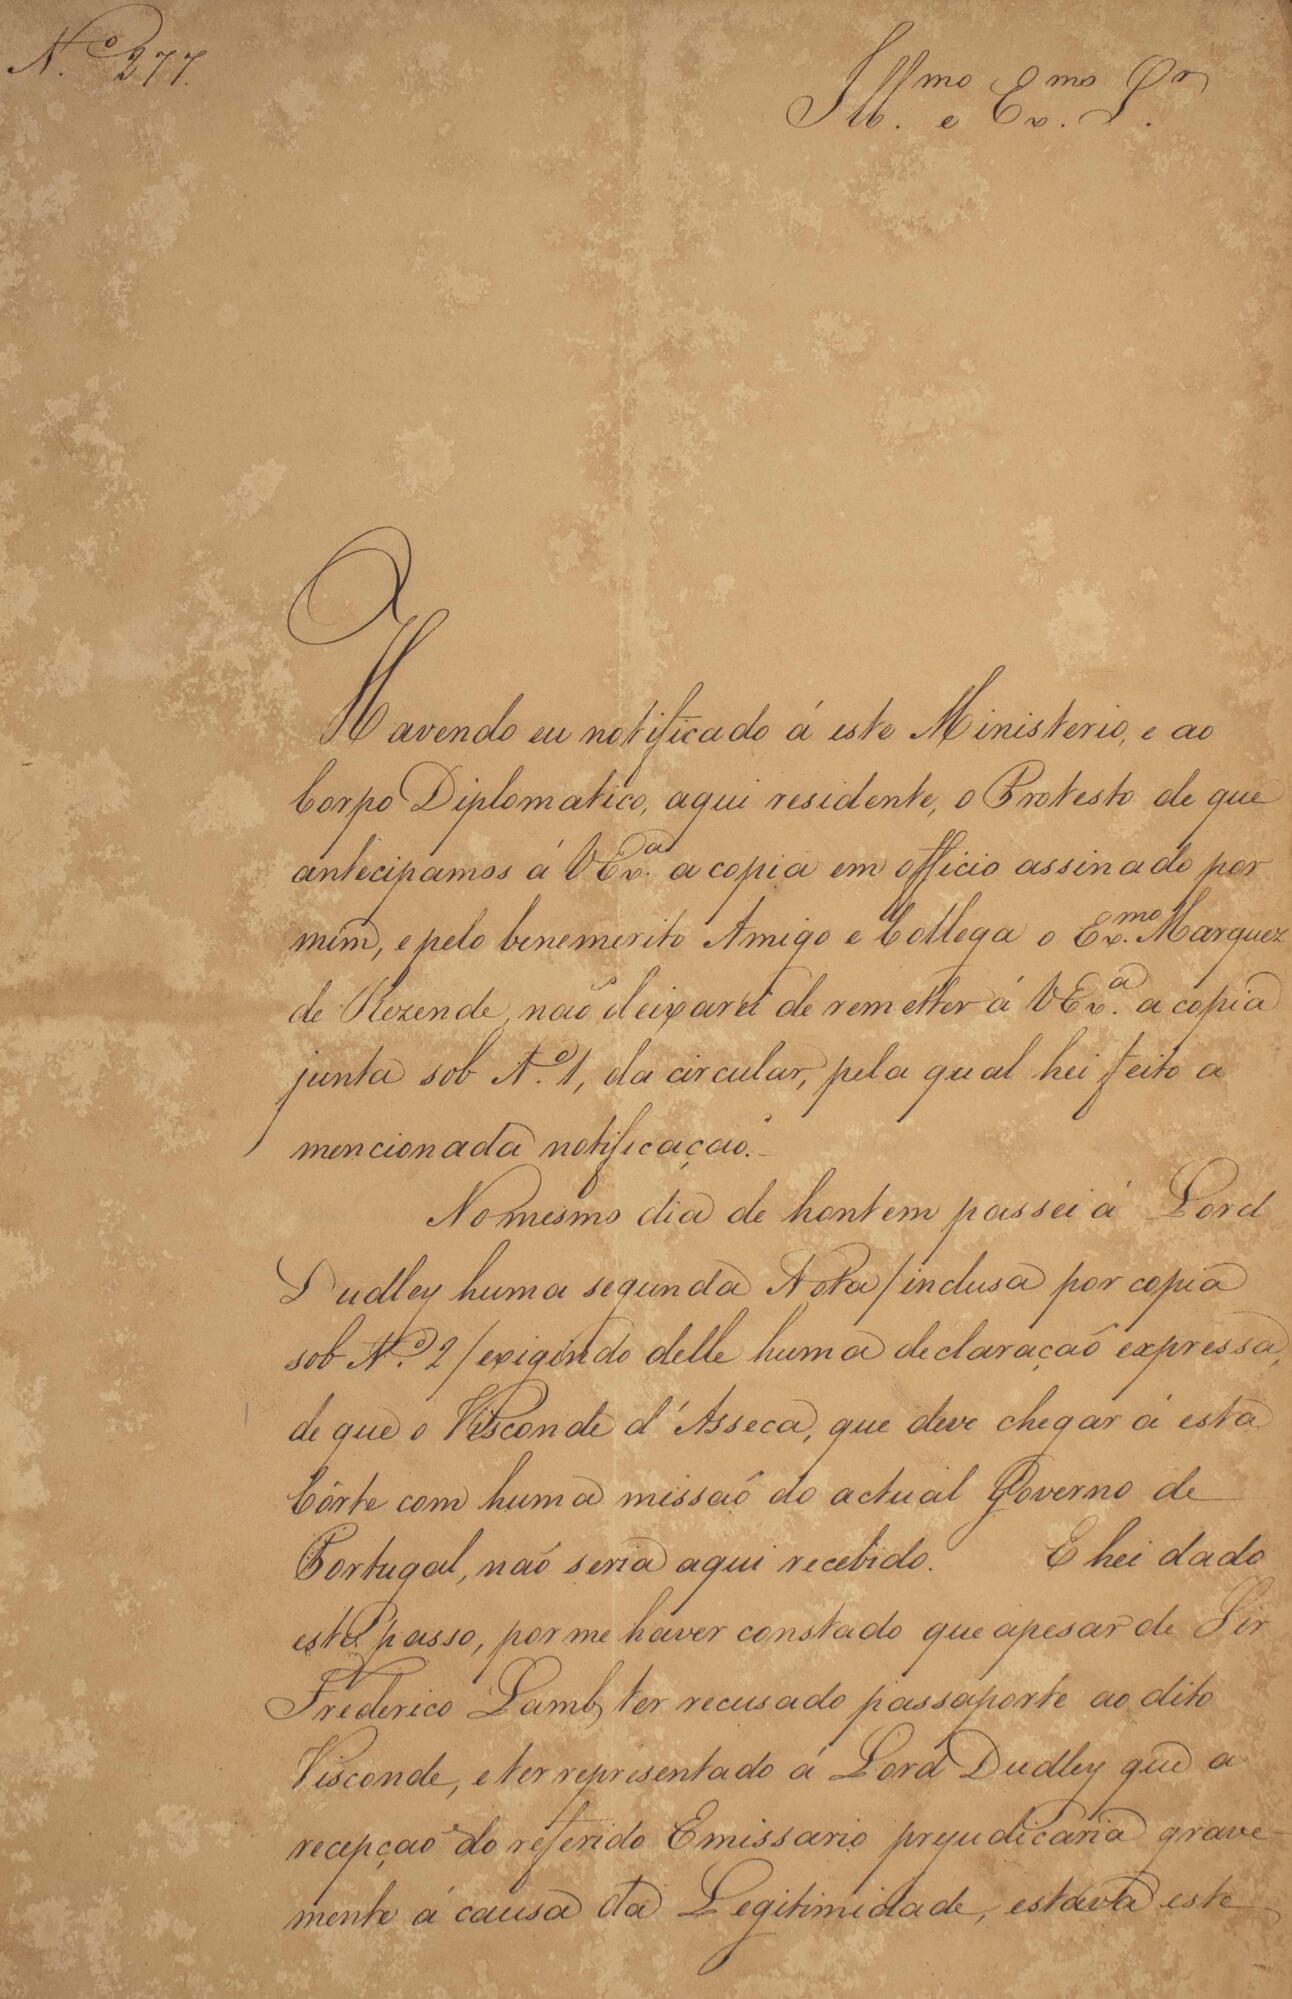 N.º 277.
Ill.mo e Ex.mo Sr.
Havendo eu notificado á este Ministerio, e ao
Corpo Diplomatico, aqui residente, o Protesto de que
antecipamos á VEx.a a copia em officio assinado por
mim, e pelo benemerito Amigo e Collega o Ex.mo Marquez
de Rezende, naõ deixarei de remetter á VEx.a a copia
junta sob N.º 1, da circular, pela qual hei feito a
mencionada notificaçaõ.
No mesmo dia de hontem passei á Lord
Dudley huma segunda Nota / inclusa por copia
sob N.º 2 / exigindo delle huma declaraçaõ expressa,
de que o Visconde d'Asseca, que deve chegar á esta
Côrte com huma missaõ do actual Governo de
Portugal, naõ seria aqui recebido. E hei dado
este passo, por me haver constado que apesar de Sir
Frederico Lamb ter recusado passaporte ao dito
Visconde, e ter representado á Lord Dudley que a
recepçaõ do referido Emissario prejudicaria grave-
mente á causa da Legitimidade, estava este